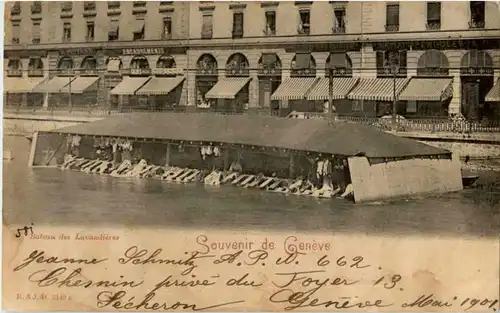 501
Bateau des Lavandières
Souvenir de Genève
Jeanne Schmitz A.P.N. 662
Chemin privé du Foyer 13.
Sécheron Genève Mai 1901.